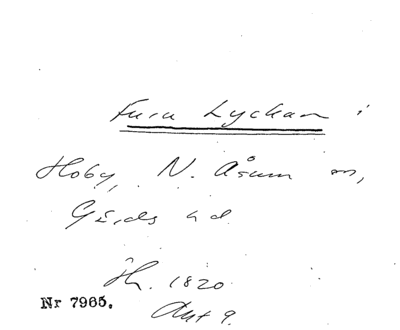 Fura Lyckan i
Hoby, N. Åsum sn,
Gärds hd.
Sk. 1820.
Nr 7965.
Akt 9.